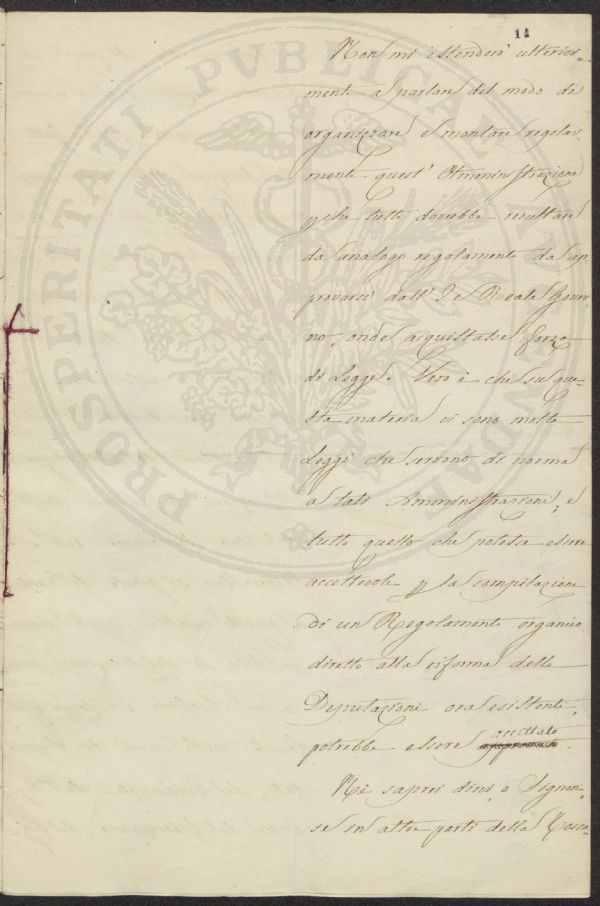 14
Non mi estenderò ulterior-
mente a parlare del modo di
organizzare e montare regolar-
mente quest' Amministrazione
p che tutto dovrebbe resultare
da analogo regolamento da ap
provarsi dall' I. e Reale Gover-
no, onde acquistasse forza
di Legge. Vero è che su que-
sta materia vi sono molte
Leggi che servono di norma
a tali Amministrazioni, e
tutto quello che potesse essere
accettevole p la compilazione
di un Regolamento organico
diretto alla riforma delle
Deputazioni ora esistente,
potrebbe essere accettato
Nè saprei dirvi, o Signori
se in altre parti della Tosca-
PROSPERITATI PVBLICAE AVGENDAE